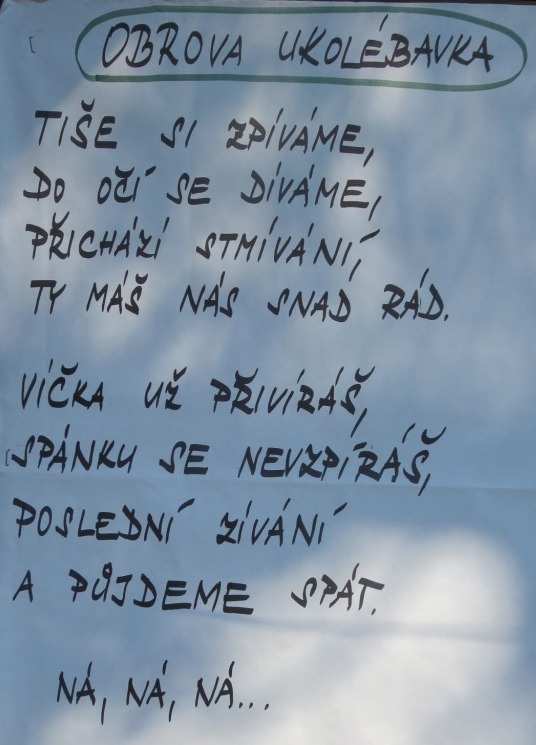 OBROVA UKOLÉBAVKA
TIŠE SI ZPÍVÁME,
DO OČÍ SE DÍVÁME,
PŘICHÁZÍ STMÍVÁNÍ,
TY MÁŠ NÁS SNAD RÁD.
VÍČKA UŽ PŘIVÍRÁŠ,
SPÁNKU SE NEVZPÍRÁŠ,
POSLEDNÍ ZÍVÁNÍ
A PŮJDEME SPÁT.
NÁ, NÁ, NÁ...